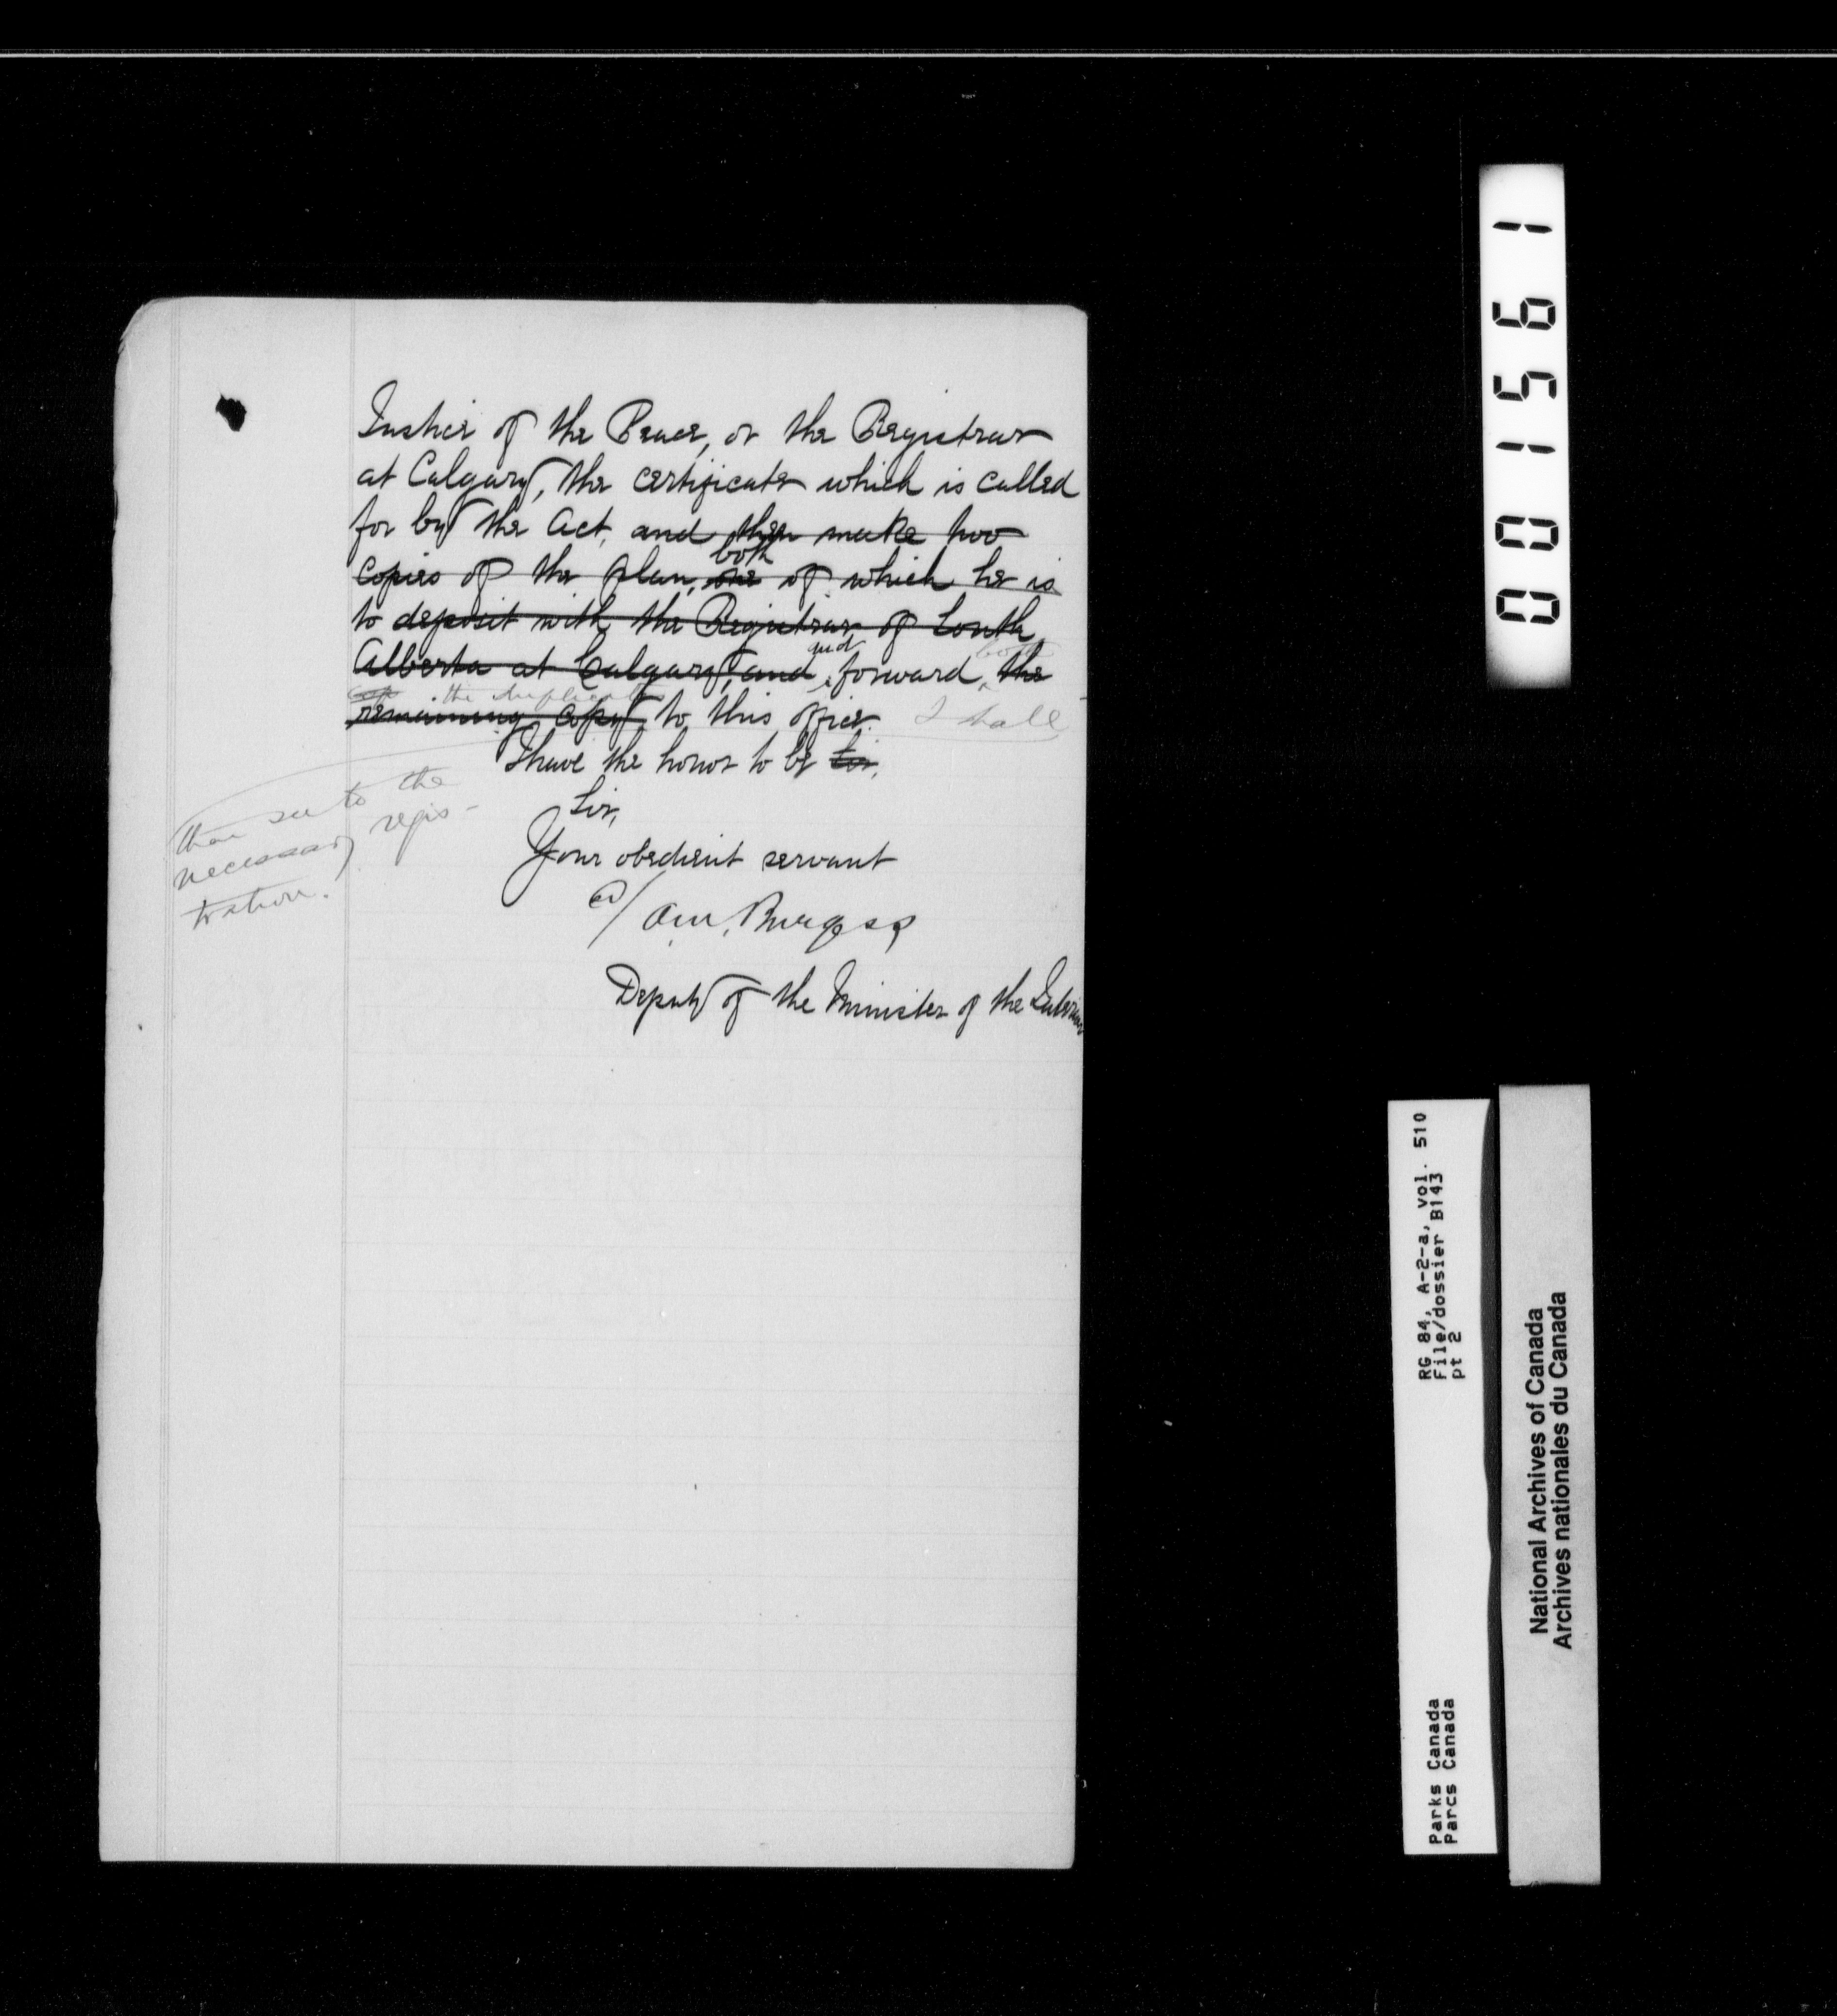 Justice of the Peace, or the Registrar
at Calgary, the certificate which is called
for by the Act, and then make two
both
copies of the plan, one of which he is
to deposit with the Registrar of South
and both
Alberta at Calgary, and forward the
the duplicate
remaining copy to this office. I shall
then see to the
necessary regis-
tration.
I have the honor to be Sir,
Sir,
Your obedient servant
A.M. Burgess
Deputy of the Minister of the Interior
001561
RG 84, A-2-a, vol. 510
File/dossier B143
pt 2
Parks Canada
Parcs Canada
National Archives of Canada
Archives nationales du Canada